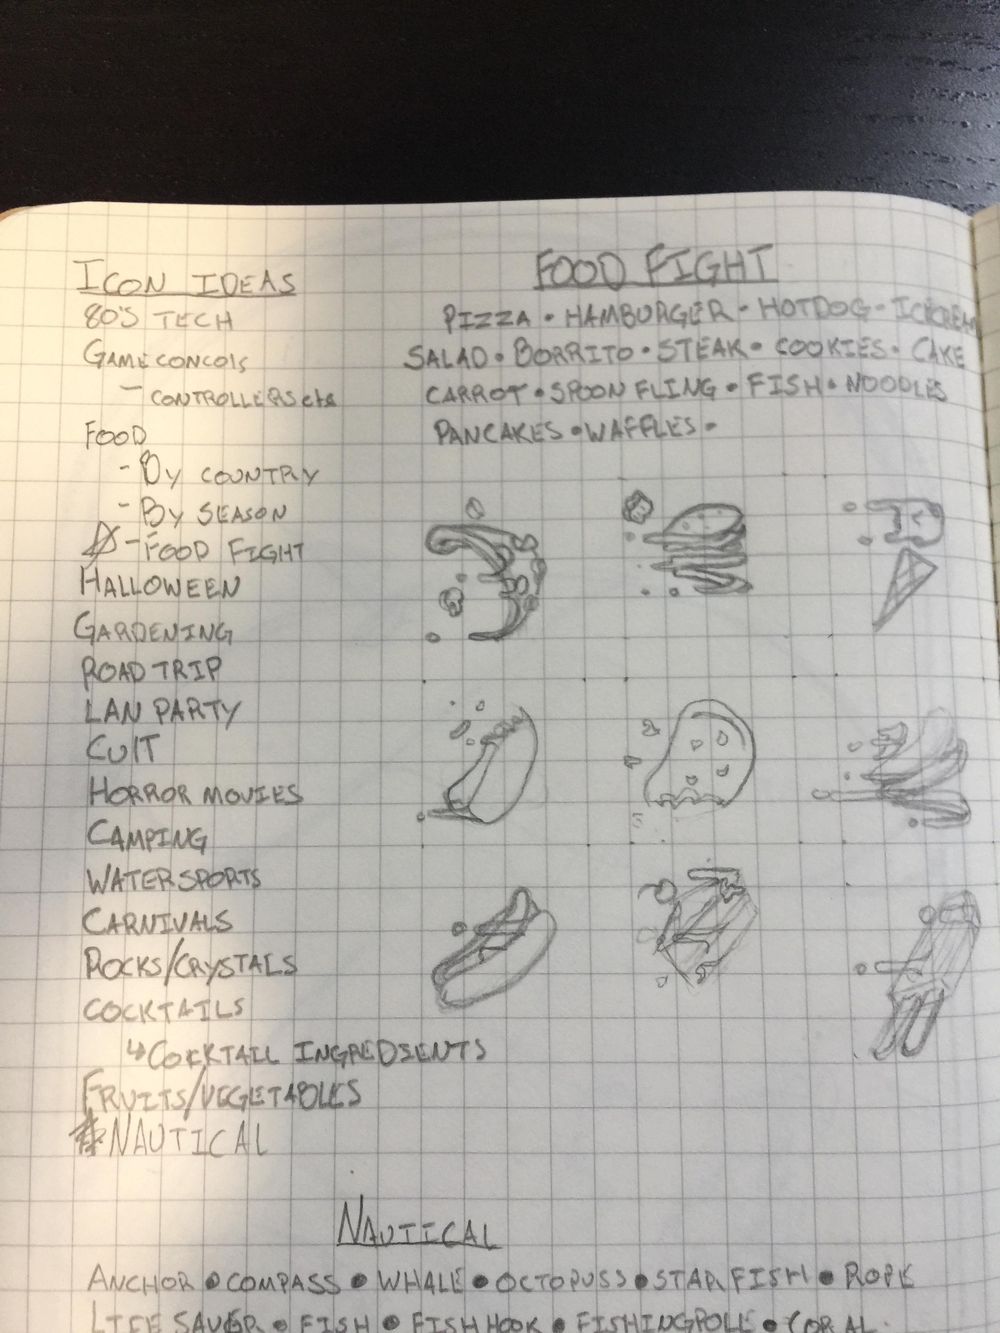 ICON IDEAS
80'S TECH
GAME CONCOLS
- CONTROLLERS etc
FOOD
- BY COUNTRY
- BY SEASON
- FOOD FIGHT
HALLOWEEN
GARDENING
ROAD TRIP
LAN PARTY
CULT
HORROR MOVIES
CAMPING
WATER SPORTS
CARNIVALS
ROCKS/CRYSTALS
COCKTAILS
↳ COCKTAIL INGREDIENTS
FRUITS/VEGETABLES
NAUTICAL
FOOD FIGHT
PIZZA • HAMBURGER - HOTDOG - ICECREAM
SALAD • BORRITO • STEAK • COOKIES • CAKE
CARROT • SPOON FLING • FISH • NOODLES
PANCAKES • WAFFLES •
NAUTICAL
ANCHOR • COMPASS • WHALE • OCTOPUSS • STAR FISH • ROPE
LIFE SAVER • FISH • FISH HOOK • FISHINGPOLE • CORAL